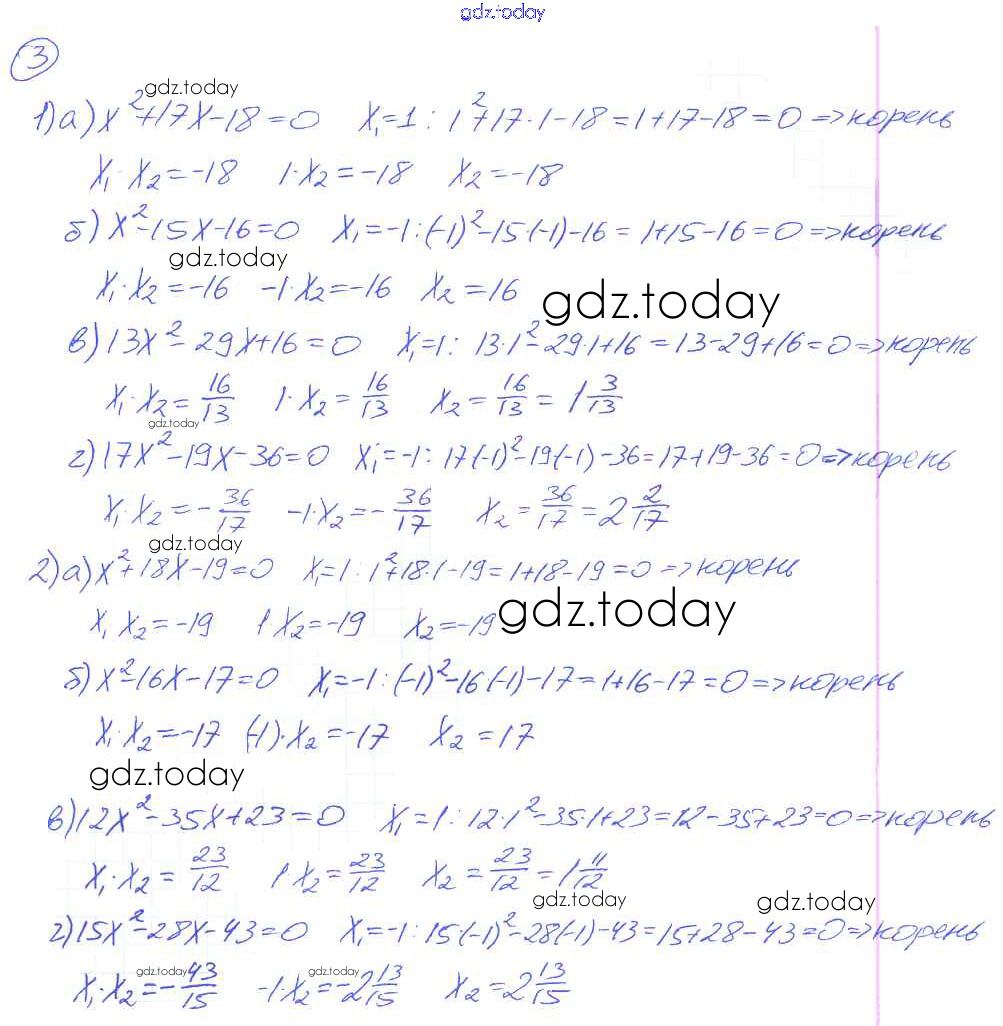 gdz.today
3
gdz.today
1) а) x²+17x-18=0 x₁=1: 1²+17·1-18=1+17-18=0=>корень
x₁·x₂=-18 1·x₂=-18 x₂=-18
б) x²-15x-16=0 x₁=-1: (-1)²-15·(-1)-16=1+15-16=0=>корень
gdz.today
x₁·x₂=-16 -1·x₂=-16 x₂=16 gdz.today
в) 13x²-29x+16=0 x₁=1: 13·1²-29·1+16=13-29+16=0=>корень
x₁·x₂=16/13 1·x₂=16/13 x₂=16/13=1 3/13
gdz.today
г) 17x²-19x-36=0 x₁=-1: 17(-1)²-19(-1)-36=17+19-36=0=>корень
x₁·x₂=-36/17 -1·x₂=-36/17 x₂=36/17=2 2/17
gdz.today
2) а) x²+18x-19=0 x₁=1: 1²+18·1-19=1+18-19=0=>корень
x₁ x₂=-19 1 x₂=-19 x₂=-19 gdz.today
б) x²-16x-17=0 x₁=-1: (-1)²-16(-1)-17=1+16-17=0=>корень
x₁·x₂=-17 (-1)·x₂=-17 x₂=17
gdz.today
в) 12x²-35x+23=0 x₁=1: 12·1²-35·1+23=12-35+23=0=>корень
x₁·x₂=23/12 1 x₂=23/12 x₂=23/12=1 11/12
gdz.today gdz.today
г) 15x²-28x-43=0 x₁=-1: 15(-1)²-28(-1)-43=15+28-43=0=>корень
gdz.today gdz.today
x₁·x₂=-43/15 -1·x₂=-2 13/15 x₂=2 13/15